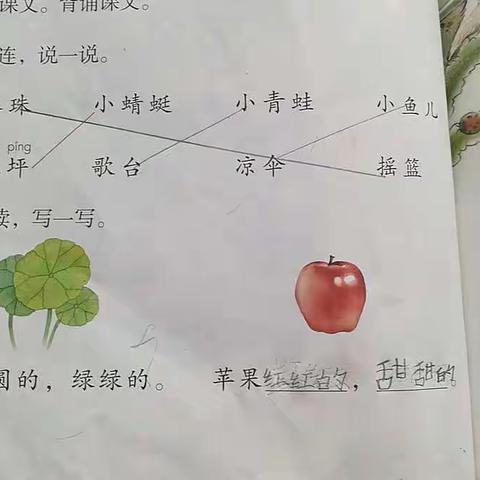 课文。背诵课文。
连，说一说。
珠 小蜻蜓 小青蛙 小鱼儿
píng
坪 歌台 凉伞 摇篮
读，写一写。
圆的，绿绿的。 苹果红红的，甜甜的